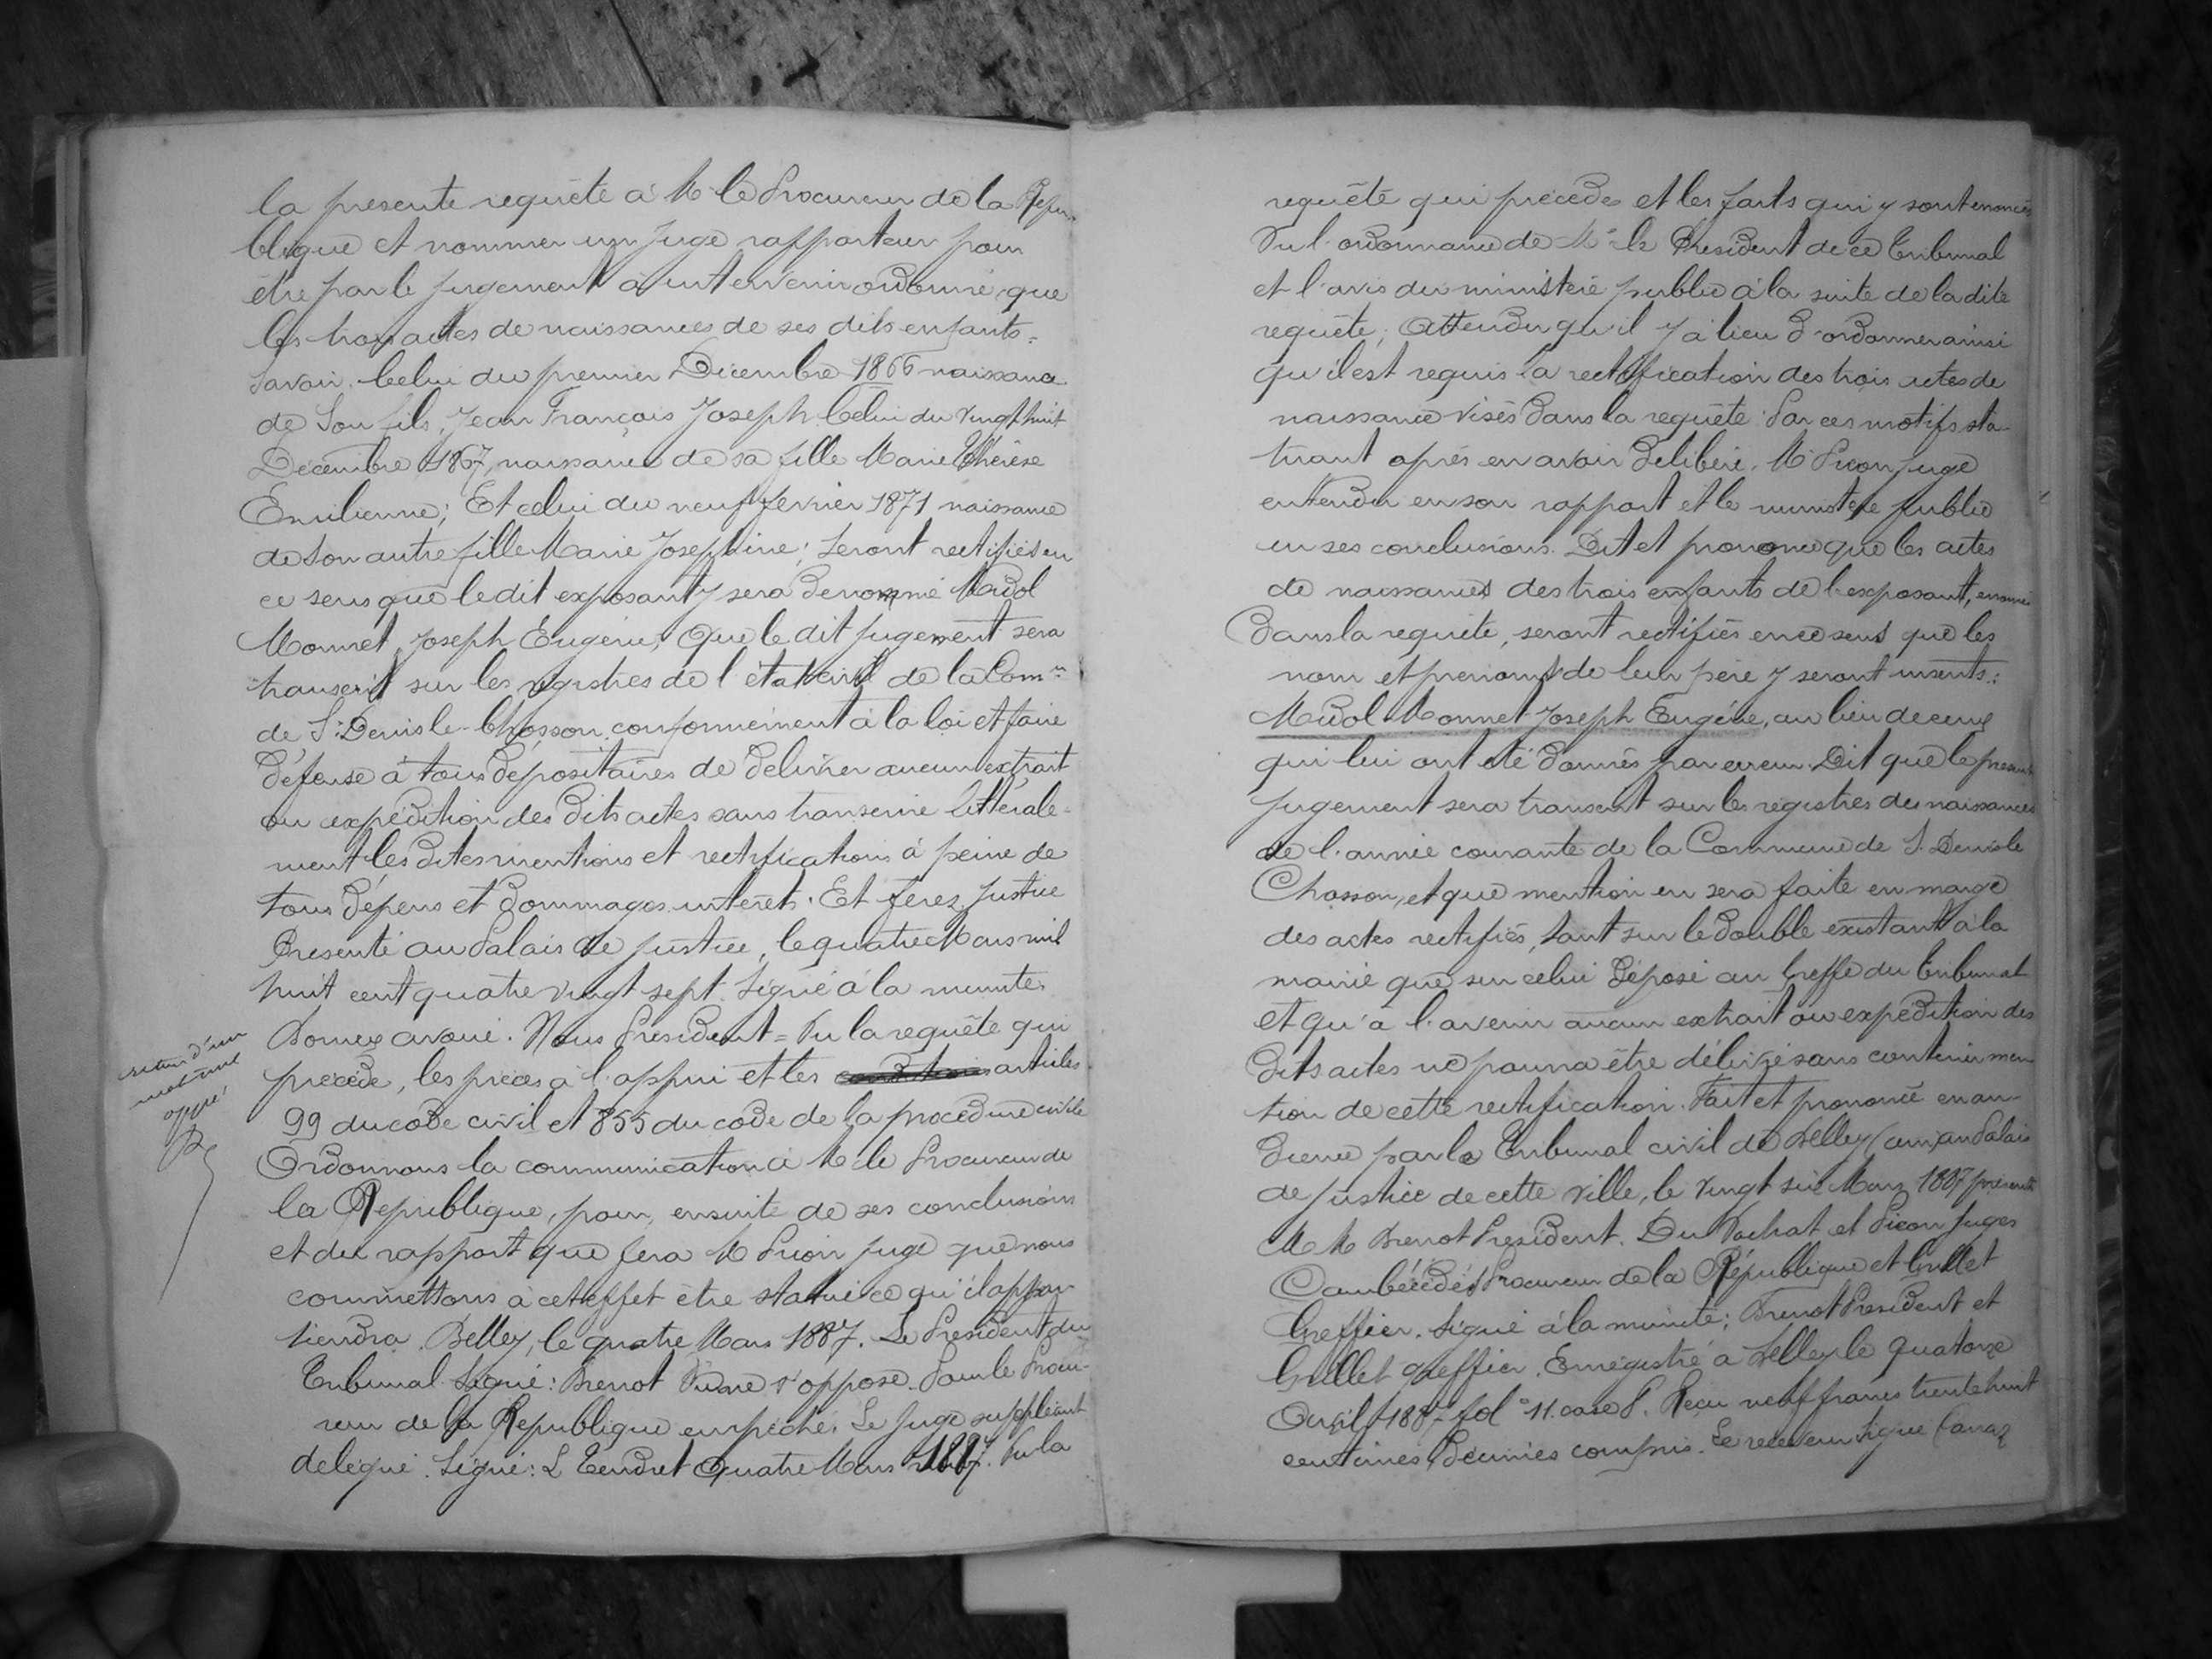 la presente requête à M le Procureur de la Répu-
blique et nommer un juge rapporteur pour
être par le jugement à intervenir ordonné que
les trois actes de naissances de ses dits enfants=
Savoir. Celui du premier Décembre 1866 naissance
de Son fils, Jean François Joseph. Celui du vingt huit
Décembre 1867, naissance de sa fille Marie Thérèse
Emilienne; Et celui du neuf février 1871 naissance
de son autre fille Marie Josephine; seront rectifiés en
ce sens que le dit exposant y sera denommé Midol
Monnet, Joseph Eugène, Que le dit jugement sera
transcrit sur les registres de l'état civil de la Com.ne
de St Denis le Chosson conformément à la loi et faire
défense à tous dépositaires de délivrer aucun extrait
ou expédition des dits actes sans transcrire littérale-
ment les dites mentions et rectifications à peine de
tous dépens et dommages intérêts. Et ferez justice
Présenté au Palais de justice, le quatre Mars mil
huit cent quatre vingt sept. Signé à la minute
avoué. Nous Président = Vu la requête qui
précède, les pièces à l'appui et les articles
99 du code civil et 855 du code de la procédure civile
Ordonnons la communication à M le Procureur de
la République, pour, ensuite de ses conclusions
et du rapport que fera M Picon juge que nous
commettons à cet effet être statué ce qu'il appar-
tiendra. Belley, le quatre Mars 1887. Le Président du
Tribunal Signé: Brenot s'oppose. Pour le Procu-
reur de la République empêché. Le juge suppléant
délégué. Signé: L Tendret Quatre Mars 1887. Vu la
ratur d'un
mot nul
appr.
requête qui précède et les faits qui y sont énoncés
Vu l'ordonnance de Mr le Président de ce Tribunal
et l'avis du ministère public à la suite de la dite
requête; Attendu qu'il y a lieu d'ordonner ainsi
qu'il est requis la rectification des trois actes de
naissance visés dans la requête. Par ces motifs sta-
tuant après en avoir délibéré, M Picon juge
entendu en son rapport et le ministère public
en ses conclusions. Dit et prononce que les actes
de naissances des trois enfants de l'exposant, énoncés
dans la requête, seront rectifiés en ce sens que les
nom et prénoms de leur père y seront inserits:
Midol Monnet Joseph Eugène, au lieu de ceux
qui lui ont été donnés par erreur. Dit que le présent
jugement sera transcrit sur les registres des naissances
de l'année courante de la Commune de St Denis le
Chosson, et que mention en sera faite en marge
des actes rectifiés, tant sur le double existant à la
mairie que sur celui déposé au Greffe du Tribunal
et qu'à l'avenir aucun extrait ou expédition des
dits actes ne pourra être délivré sans contenir men-
tion de cette rectification. Fait et prononcé en au-
dience par le Tribunal civil de Belley (ain) au Palais
de justice de cette ville, le vingt six Mars 1887 présents
M M Brenot Président. Du Vachat et Picon juges
Procureur de la République et Grillet
Greffier. Signé à la minute; Brenot Président et
Grillet greffier. Enregistré à Belley le quatorze
Avril 1887 fol° 11. case 8. Reçu neuf francs trente huit
centimes Décimes compris. Le receveur signé